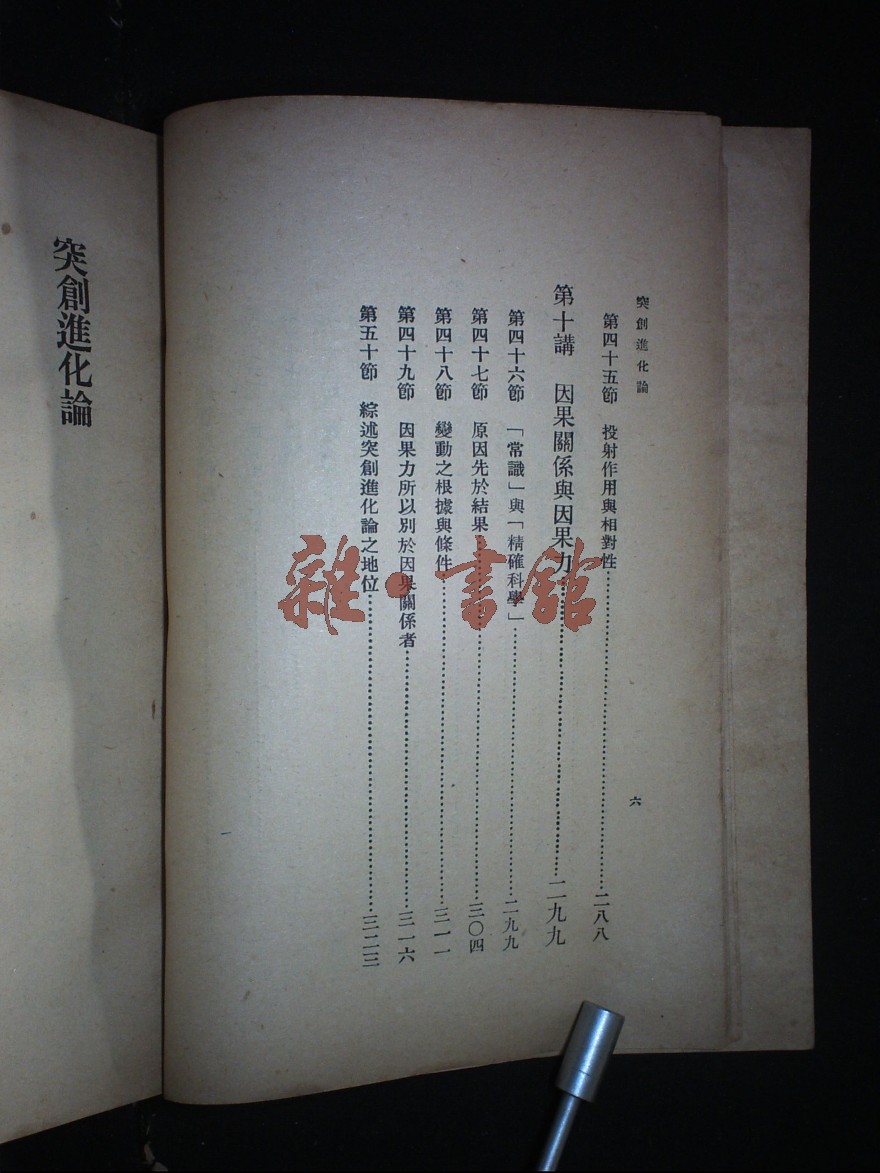 突創進化論
六
第四十五節 投射作用與相對性……二八八
第十講 因果關係與因果力……二九九
第四十六節 「常識」與「精確科學」……二九九
第四十七節 原因先於結果……三〇四
第四十八節 變動之根據與條件……三一一
第四十九節 因果力所以別於因果關係者……三一六
第五十節 綜述突創進化論之地位……三二三
突創進化論
雜·書館